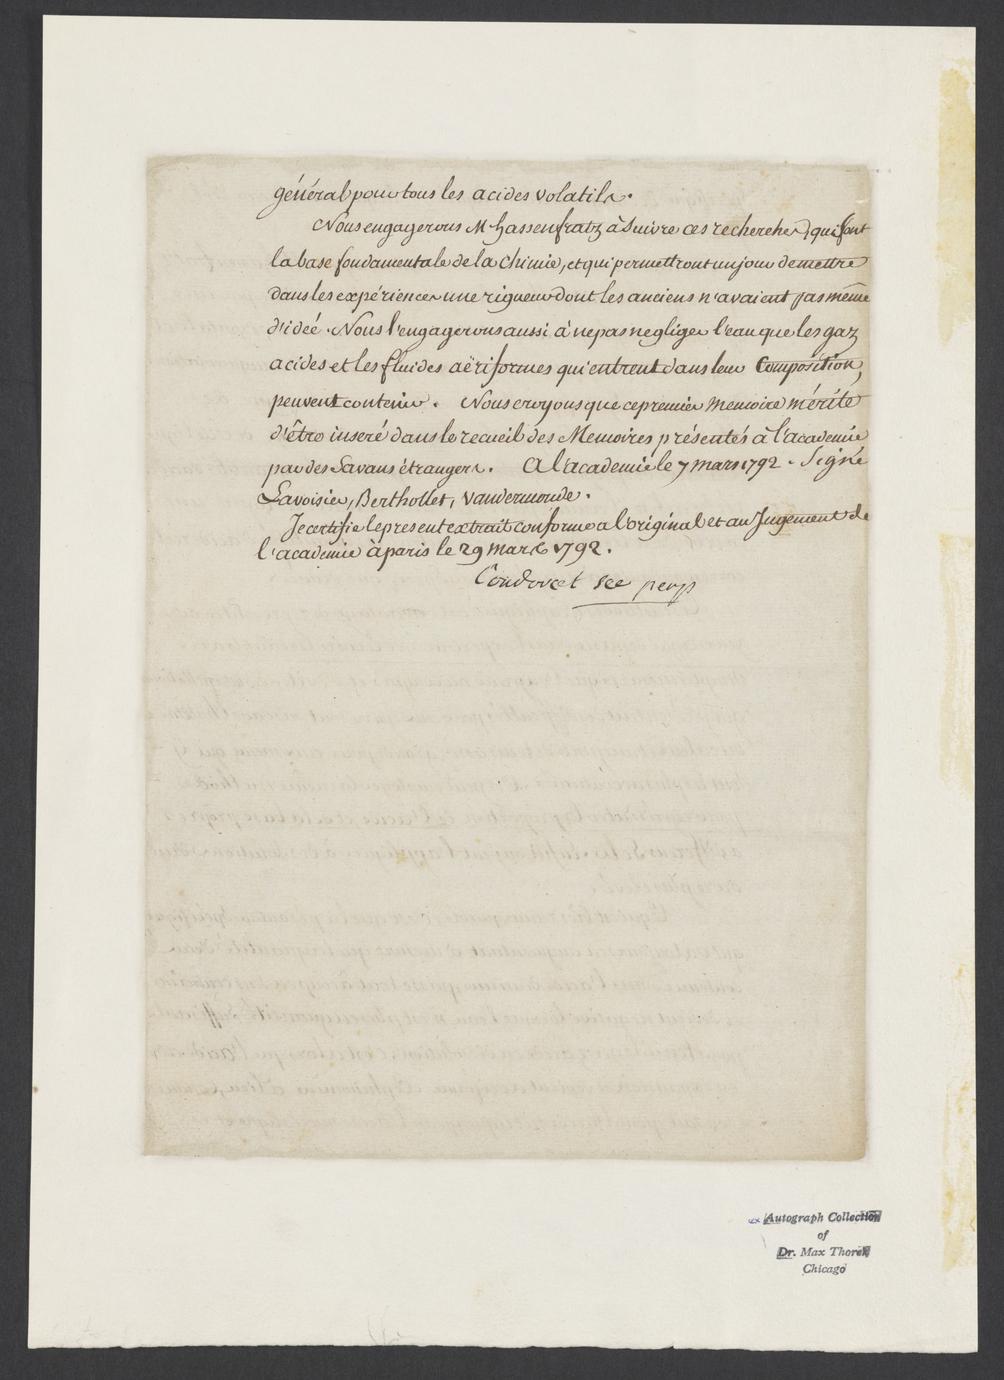 général pour tous les acides volatils.
Nous engagerons M hassenfratz à Suivre ces recherches, qui font
la base fondamentale de la Chimie, et qui permettront un jour de mettre
dans les expériences une rigueur dont les anciens n'avaient pas même
d'ideé. Nous l'engagerons aussi à ne pas negliger l'eau que les gaz
acides et les fluides aëriformes qui entrent dans leur Composition,
peuvent contenir. Nous croyons que ce premier Memoire mérite
d'être inseré dans le recueil des Memoires présentés à l'academie
par des Savans étrangers. A l'academie le 7 mars 1792. Signé
Lavoisier, Berthollet, Vandermonde.
Je certifie le present extrait conforme a l'original et au Jugement de
l'academie à paris le 29 Mars 1792.
Condorcet Sec perp
ex Autograph Collection
of
Dr. Max Thorek
Chicago